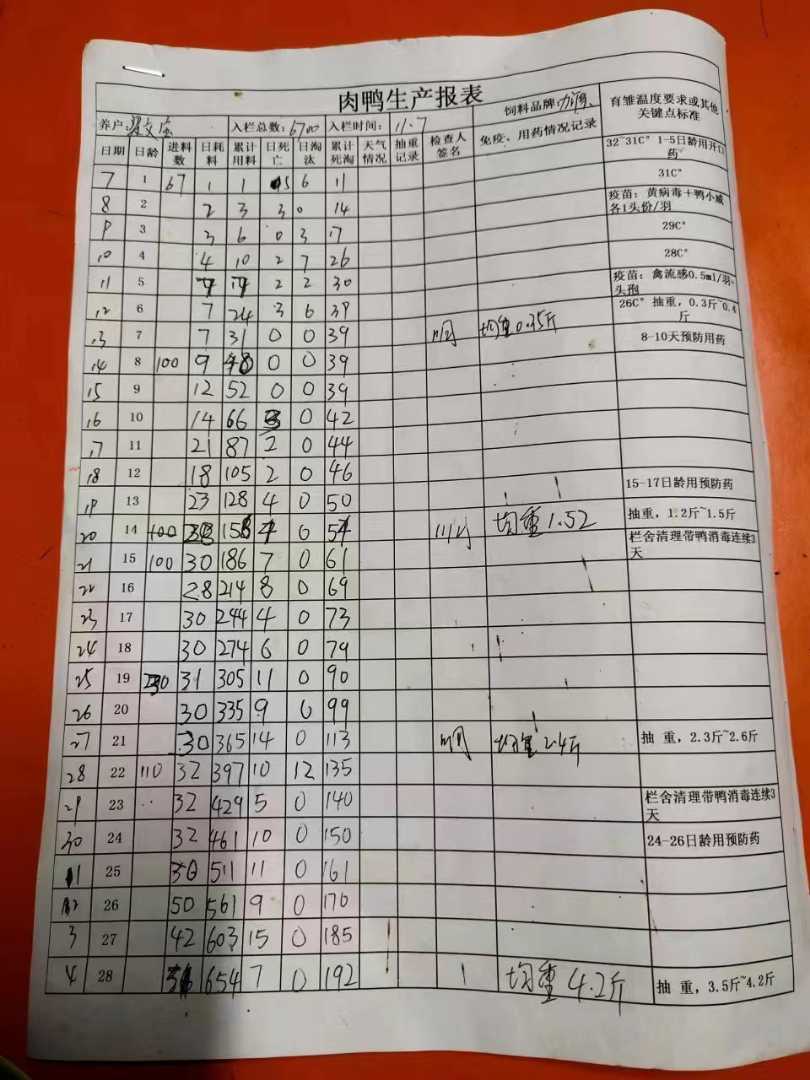 肉鸭生产报表
养户: 入栏总数:6700 入栏时间:11.7 饲料品牌: 育雏温度要求或其他关键点标准
日期 日龄 进料数 日耗料 累计用料 日死亡 日淘汰 累计死淘 天气情况 抽重记录 检查人签名 免疫、用药情况记录
32~31C° 1-5日龄用开口药
7 1 67 1 1 5 6 11 31C°
8 2 2 3 3 0 14 疫苗:黄病毒+鸭小减各1头份/羽
9 3 3 6 0 3 17 29C°
10 4 4 10 2 7 26 28C°
11 5 2 2 30 疫苗:禽流感0.5ml/羽+头孢
12 6 7 24 3 6 39 26C° 抽重,0.3斤~0.4斤
13 7 7 31 0 0 39 均重0.35斤 8-10天预防用药
14 8 100 9 0 0 39
15 9 12 52 0 0 39
16 10 14 66 3 0 42
17 11 21 87 2 0 44
18 12 18 105 2 0 46 15-17日龄用预防药
19 13 23 128 4 0 50 抽重,1.2斤~1.5斤
20 14 158 4 0 54 均重1.52 栏舍清理带鸭消毒连续3天
21 15 100 30 186 7 0 61
22 16 28 214 8 0 69
23 17 30 244 4 0 73
24 18 30 274 6 0 79
25 19 31 305 11 0 90
26 20 30 335 9 0 99
27 21 30 365 14 0 113 均重2.4斤 抽 重,2.3斤~2.6斤
28 22 110 32 397 10 12 135
29 23 32 429 5 0 140 栏舍清理带鸭消毒连续3天
30 24 32 461 10 0 150 24-26日龄用预防药
1 25 50 511 11 0 161
26 50 561 9 0 170
3 27 42 603 15 0 185
4 28 654 7 0 192 均重4.2斤 抽 重,3.5斤~4.2斤